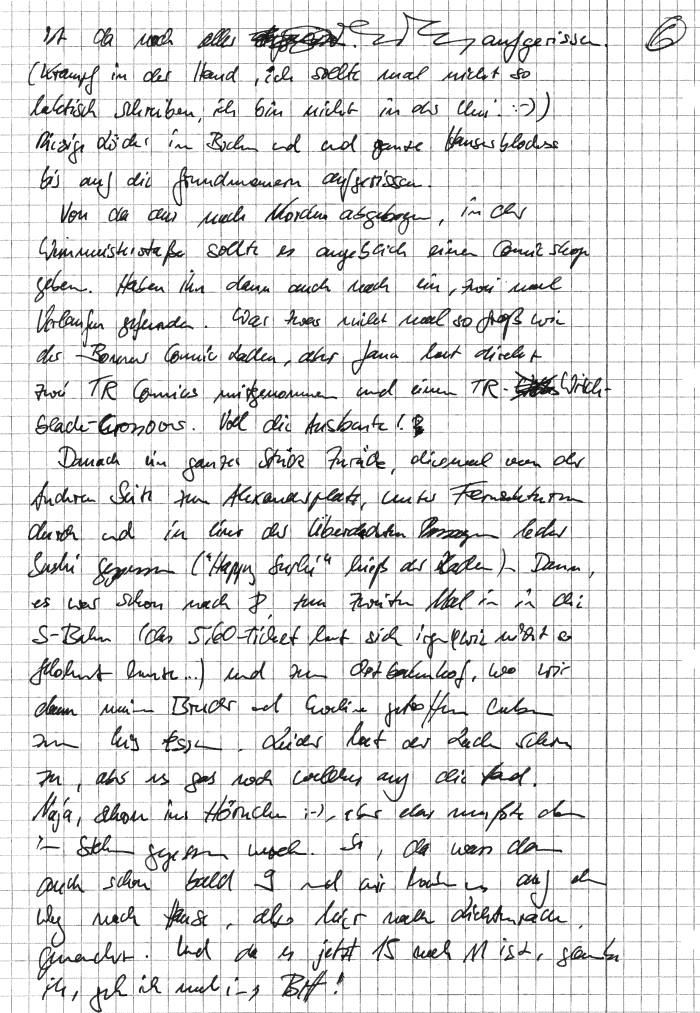 ist da noch alles aufgerissen. 6
(Krampf in der Hand, ich sollte mal nicht so
hektisch schreiben, ich bin nicht in der Uni. :-))
Riesige Löcher im Boden und und ganze Häuserblocks
bis auf die Grundmauern aufgerissen.
Von da aus nach Norden abgebogen, in der
sollte es angeblich einen Comicshop
geben. Haben ihn dann auch nach ein, zwei mal
Verlaufen gefunden. War zwar nicht mal so groß wie
der Bonner Comic Laden, aber Jana hat direkt
zwei TR Comics mitgenommen und einen TR-Witch-
blade-Crossover. Voll die Ausbeute!
Danach ein ganzes Stück zurück, diesmal von der
Anderen Seite zum Alexanderplatz, unter Fernsehturm
durch und in einer der Überdachten Passagen lecker
Sushi gegessen ("Happy Sushi" hieß der Laden). Dann,
es war schon nach 8, zum zweiten Mal in in die
S-Bahn (das 5,60-Ticket hat sich irgendwie nicht so
gelohnt heute...) und zum Ostbahnhof, wo wir
dann meinen Bruder und getroffen haben
zum Eis essen. Leider hat der Laden schon
zu, aber es gab noch welches auf die Hand.
Naja, schon ins Hörnchen :-), aber das mußte dann
im Stehen gegessen werden. So, da wars dann
auch schon bald 9 und wir haben uns auf den
Weg nach Hause, also hier nach Lichtenrade,
gemacht. Und da es jetzt 15 nach 11 ist, glaube
ich, geh ich mal ins Bett!